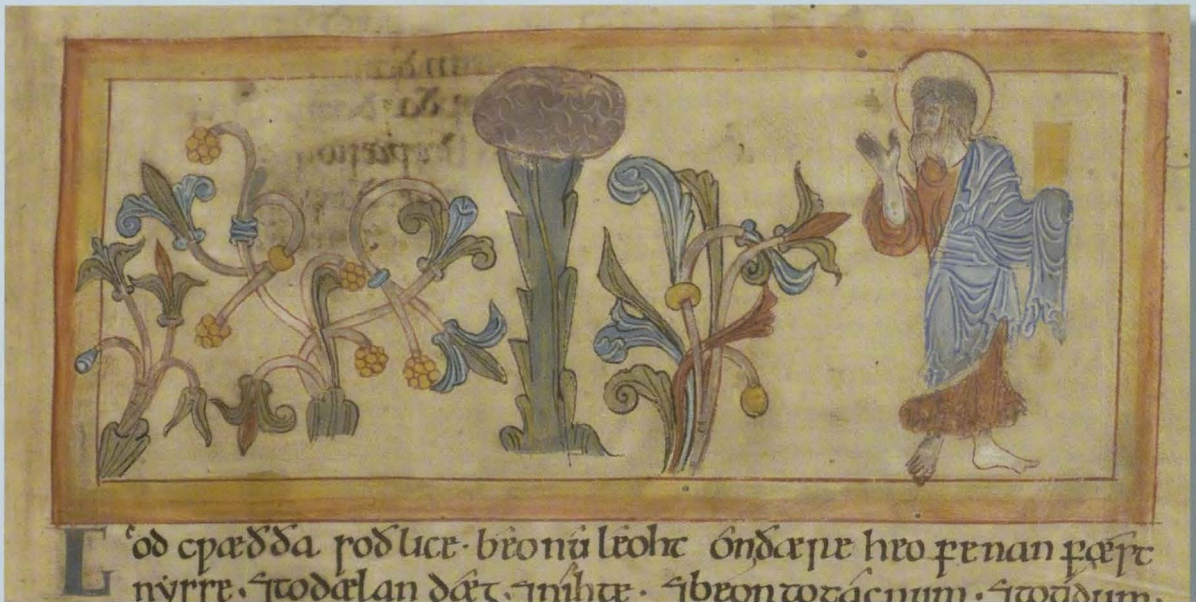 God cƿæð ða soðlice· beo nú leoht on ðære heofenan fæst
nysse· ⁊ todælan dæg· ⁊ nihte· ⁊ beon to tácnum· ⁊ to tídum·